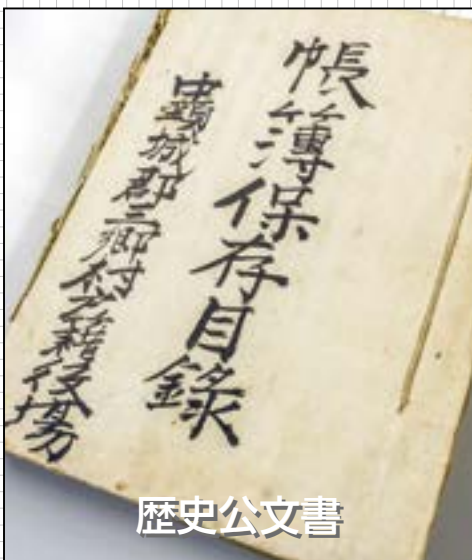 帳簿保存目録
中頸城郡三郷村戸籍役場
歴史公文書